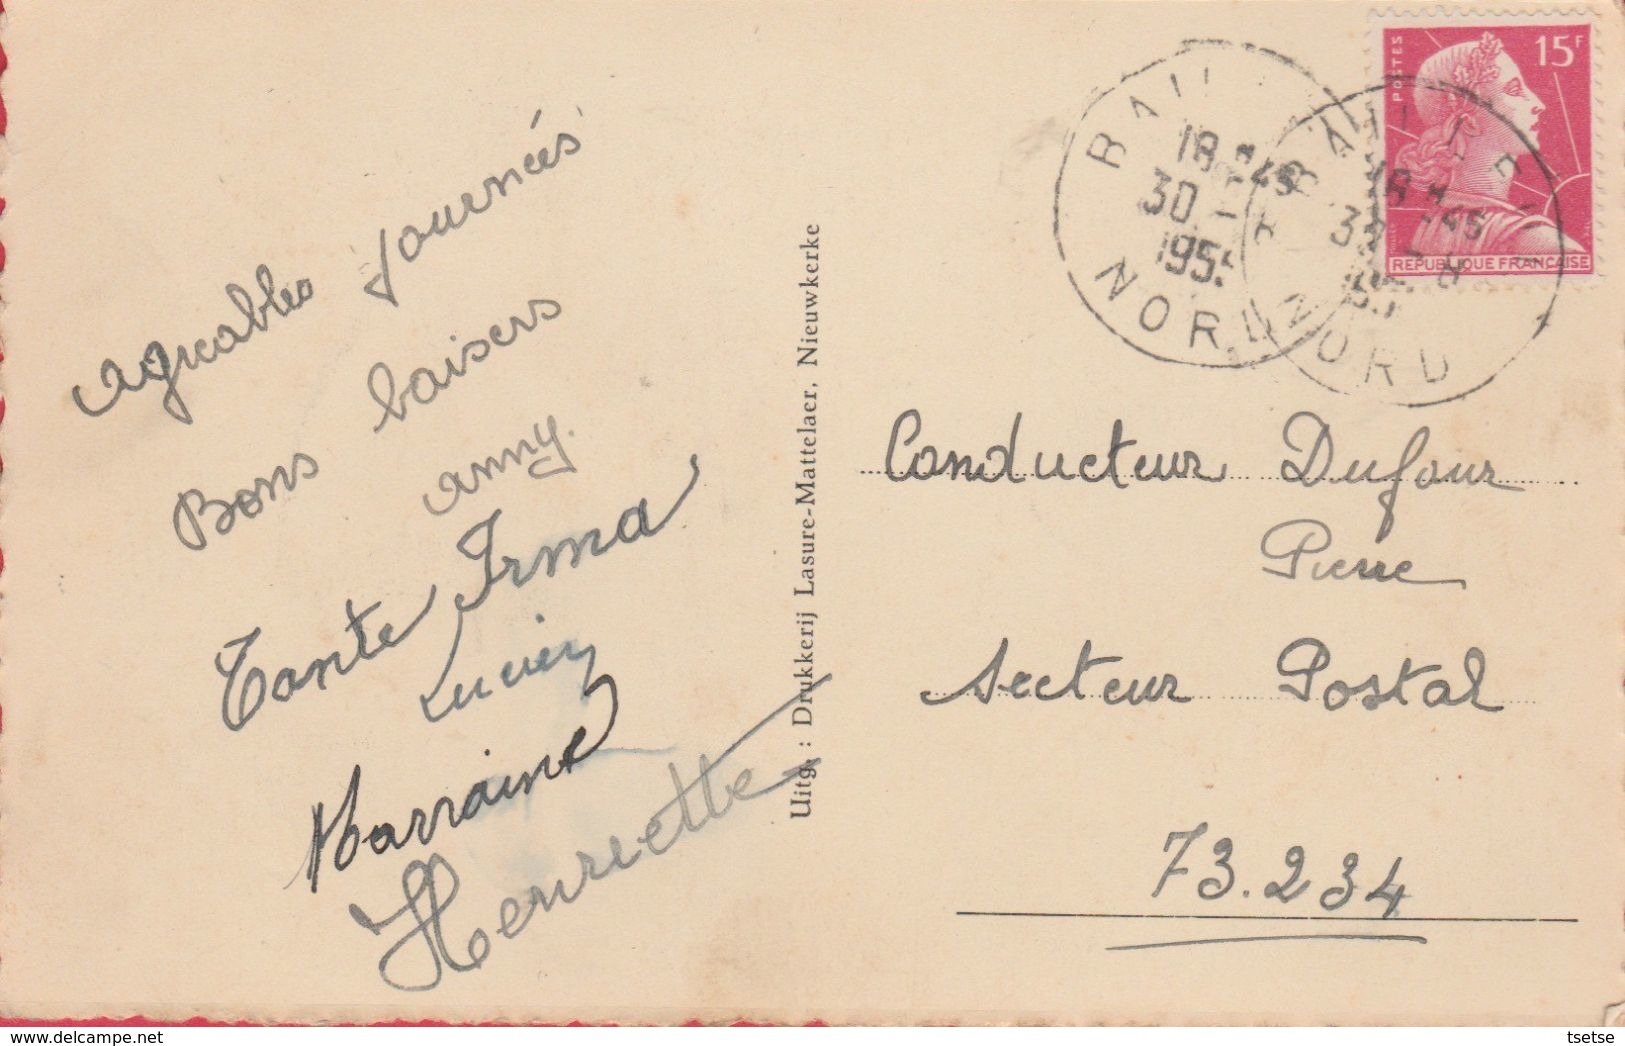 agréables journées
Bons baisers
anny.
Tante Irma
Lucien
Marraine
Henriette
Uitg. : Drukkerij Lasure-Mattelaer, Nieuwkerke
18 H 45
30 - 8
1955
NORD
18 H 45
NORD
POSTES
15F
REPUBLIQUE FRANÇAISE
Conducteur Dufour
Pierre
Secteur Postal
73.234
tsetse